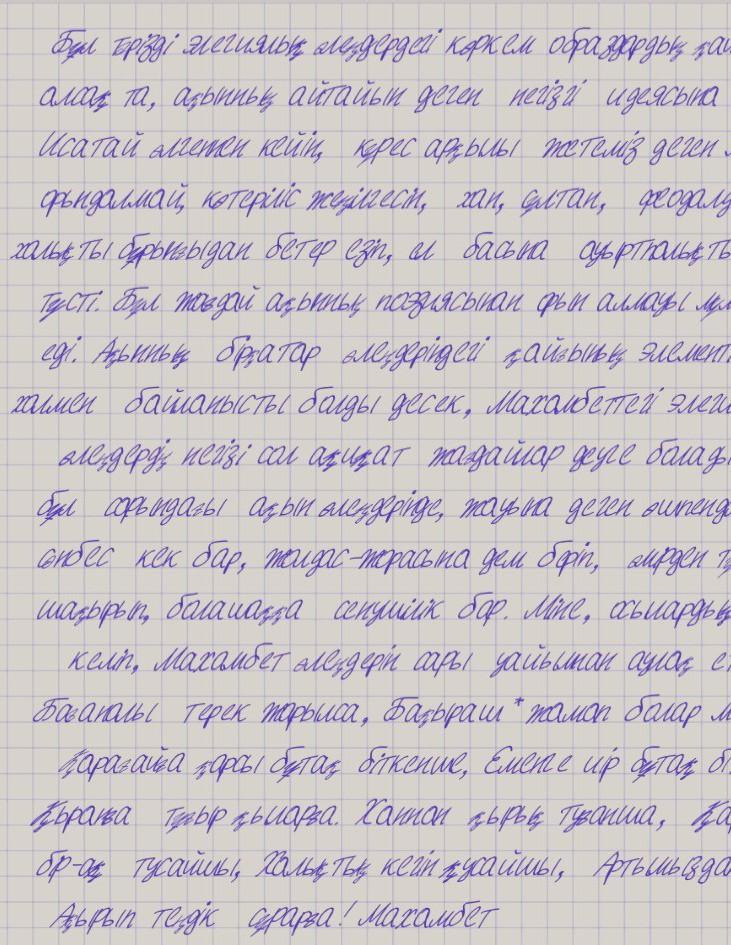 Бұл тәрізді элегиялық өлеңдердегі көркем образдардың
алсақ та, ақынның айтайын деген негізгі идеясына
Исатай өлгеннен кейін, күрес арқылы жетеміз деген
орындалмай, көтеріліс жеңілгесін, хан, сұлтан, феодалд
халықты бұрынғыдан бетер езіп, ел басына ауыртпалықты
түсті. Бұл жағдай ақынның поэзиясынан орын алмауы мүм
еді. Ақынның бірқатар өлеңдеріндегі қайғының элемент
халмен байланысты болды десек, Махамбеттегі элеги
өлеңдердің негізі сол ақиқат жағдайлар деуге болады
бұл сарындағы ақын өлеңдерінде, жауына деген өшпенд
сөнбес кек бар, жолдас-жорасына дем беріп, өмірден
шақырып, болашаққа сенушілік бар. Міне, осылардың
келіп, Махамбет өлеңдерін сары уайымнан аулақ ет
Бағаналы терек жарылса, Бақыраш * жамап болар м
Қарағайға қарсы бұтақ біткенше, Еменге иір бұтақ бі
Қыранға тұғыр қыларға. Ханнан қырық туғанша, Қар
бір-ақ тусайшы, Халықтың кегін қусайшы, Артымызда
Ақырып теңдік сұрарға! Махамбет